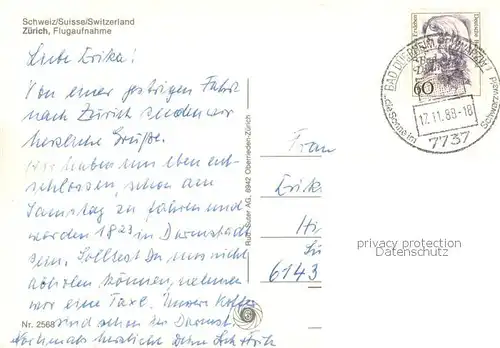 Schweiz/Suisse/Switzerland
Zürich, Flugaufnahme
Liebe Erika!
Von einer gestrigen Fahrt
nach Zürich senden wir
herzliche Grüße.
Wir haben uns eben ent-
schlossen, schon am
Samstag zu fahren und
werden 18 23 in Darmstadt
sein. Solltest Du uns nicht
abholen können, nehmen
wir eine Taxe. Unsere Koffer
sind schon in Darmst.
Nochmals herzliche
Nr. 2568
Rud. Suter AG, 8942 Oberrieden-Zürich
Frau
Erik
Hi
6143
60
BAD DÜRRHEIM
17.11.89-18
7737
privacy protection
Datenschutz